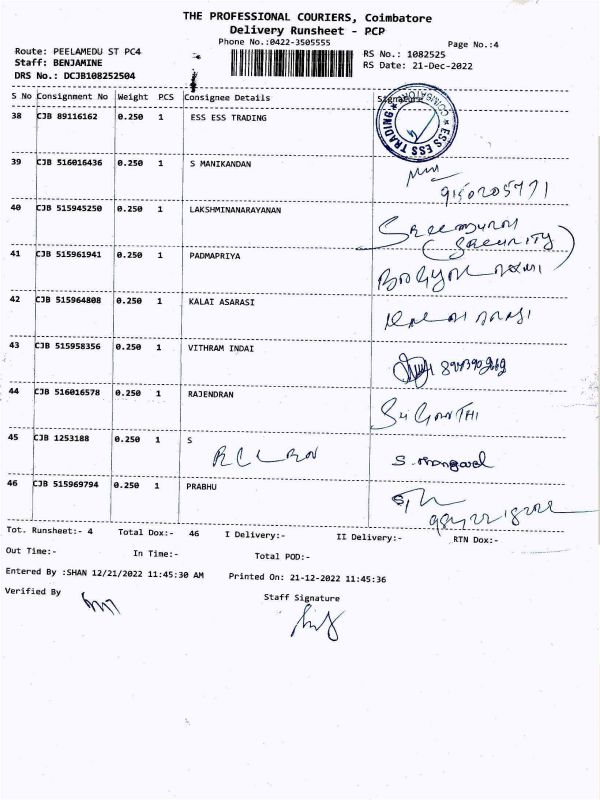 THE PROFESSIONAL COURIERS, Coimbatore
Delivery Runsheet - PCP
Phone No.:0422-3505555
Page No.:4
Route: PEELAMEDU ST PC4
Staff: BENJAMINE
DRS No.: DCJB108252504
RS No.: 1082525
RS Date: 21-Dec-2022
S No Consignment No Weight PCS Consignee Details Signature
38 CJB 89116162 0.250 1 ESS ESS TRADING
★ ESS ESS TRADING ★ COIMBATORE
39 CJB 516016436 0.250 1 S MANIKANDAN
9150205771
40 CJB 515945250 0.250 1 LAKSHMINANARAYANAN
(SECURITY)
41 CJB 515961941 0.250 1 PADMAPRIYA
42 CJB 515964808 0.250 1 KALAI ASARASI
43 CJB 515958356 0.250 1 VITHRAM INDAI
44 CJB 516016578 0.250 1 RAJENDRAN
SUGANTHI
45 CJB 1253188 0.250 1 S
46 CJB 515969794 0.250 1 PRABHU
Tot. Runsheet:- 4 Total Dox:- 46 I Delivery:- II Delivery:- RTN Dox:-
Out Time:- In Time:- Total POD:-
Entered By :SHAN 12/21/2022 11:45:30 AM Printed On: 21-12-2022 11:45:36
Verified By
Staff Signature